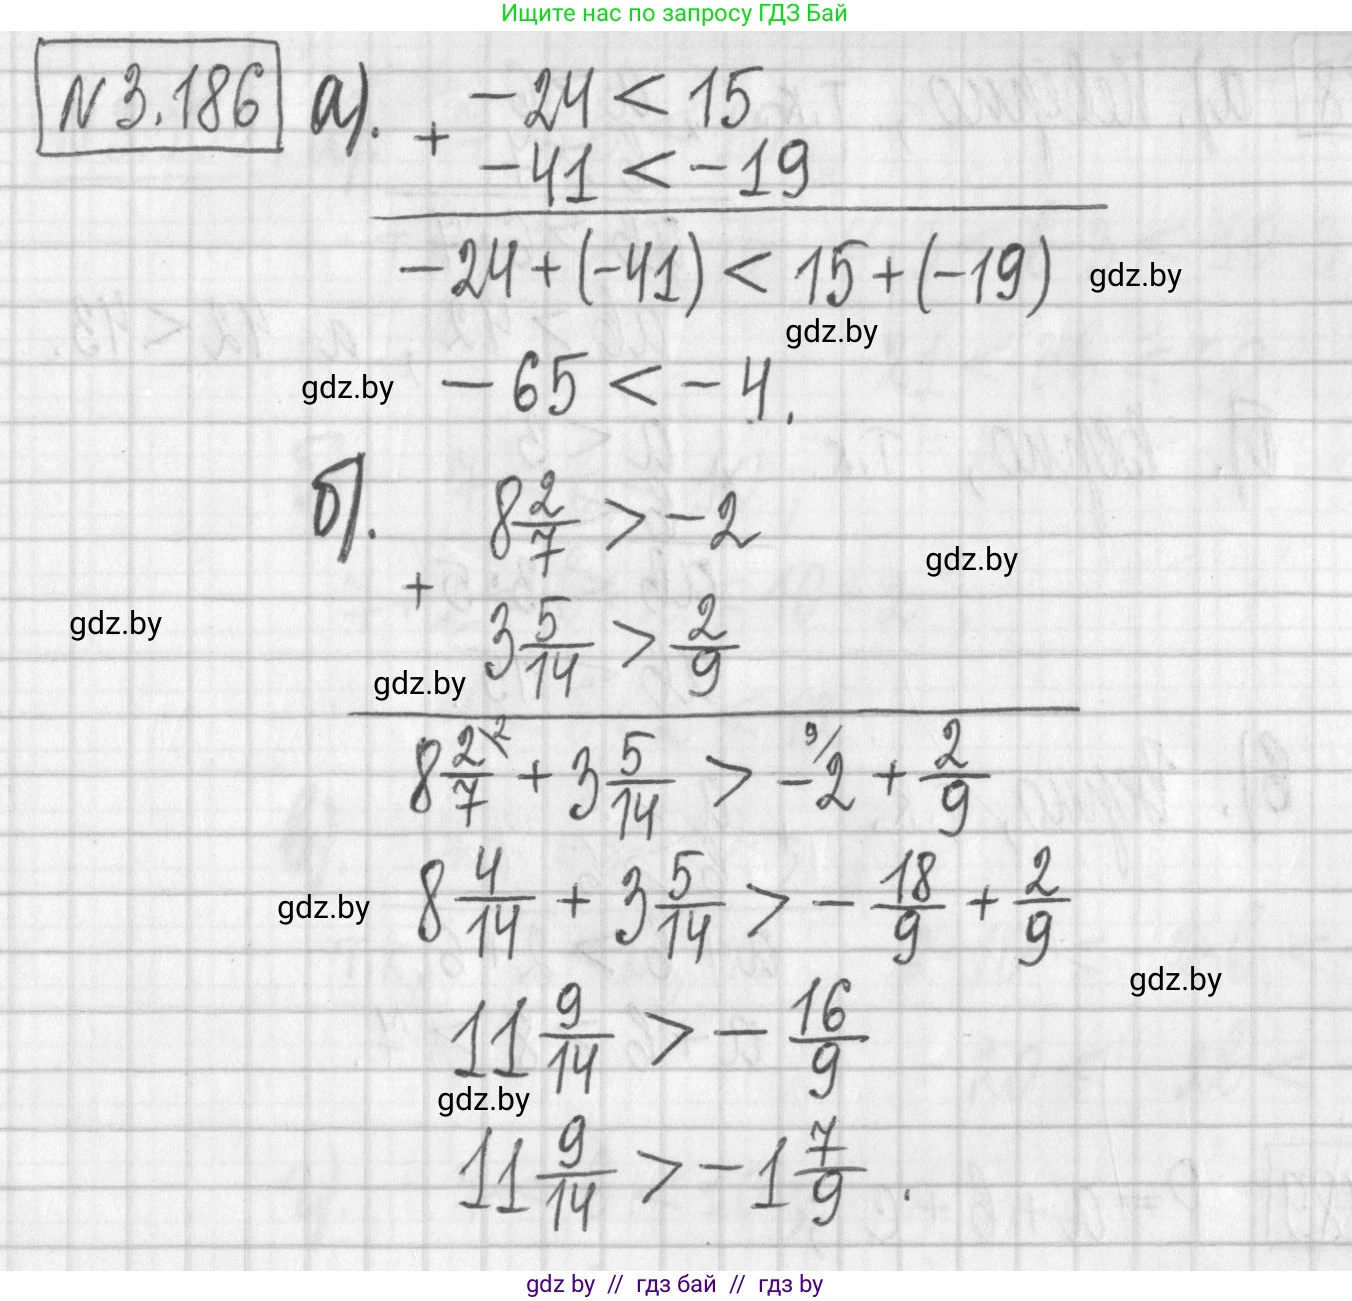 Ищите нас по запросу ГДЗ Бай
№3.186 а). -24 < 15
+
-41 < -19
-24 + (-41) < 15 + (-19) gdz.by
gdz.by
gdz.by -65 < -4.
б). 8 2/7 > -2
gdz.by
+
gdz.by
3 5/14 > 2/9
gdz.by
8 2/7 \2 + 3 5/14 > 9/ -2 + 2/9
gdz.by 8 4/14 + 3 5/14 > - 18/9 + 2/9
gdz.by
11 9/14 > - 16/9
gdz.by
11 9/14 > -1 7/9.
gdz by // гдз бай // гдз by